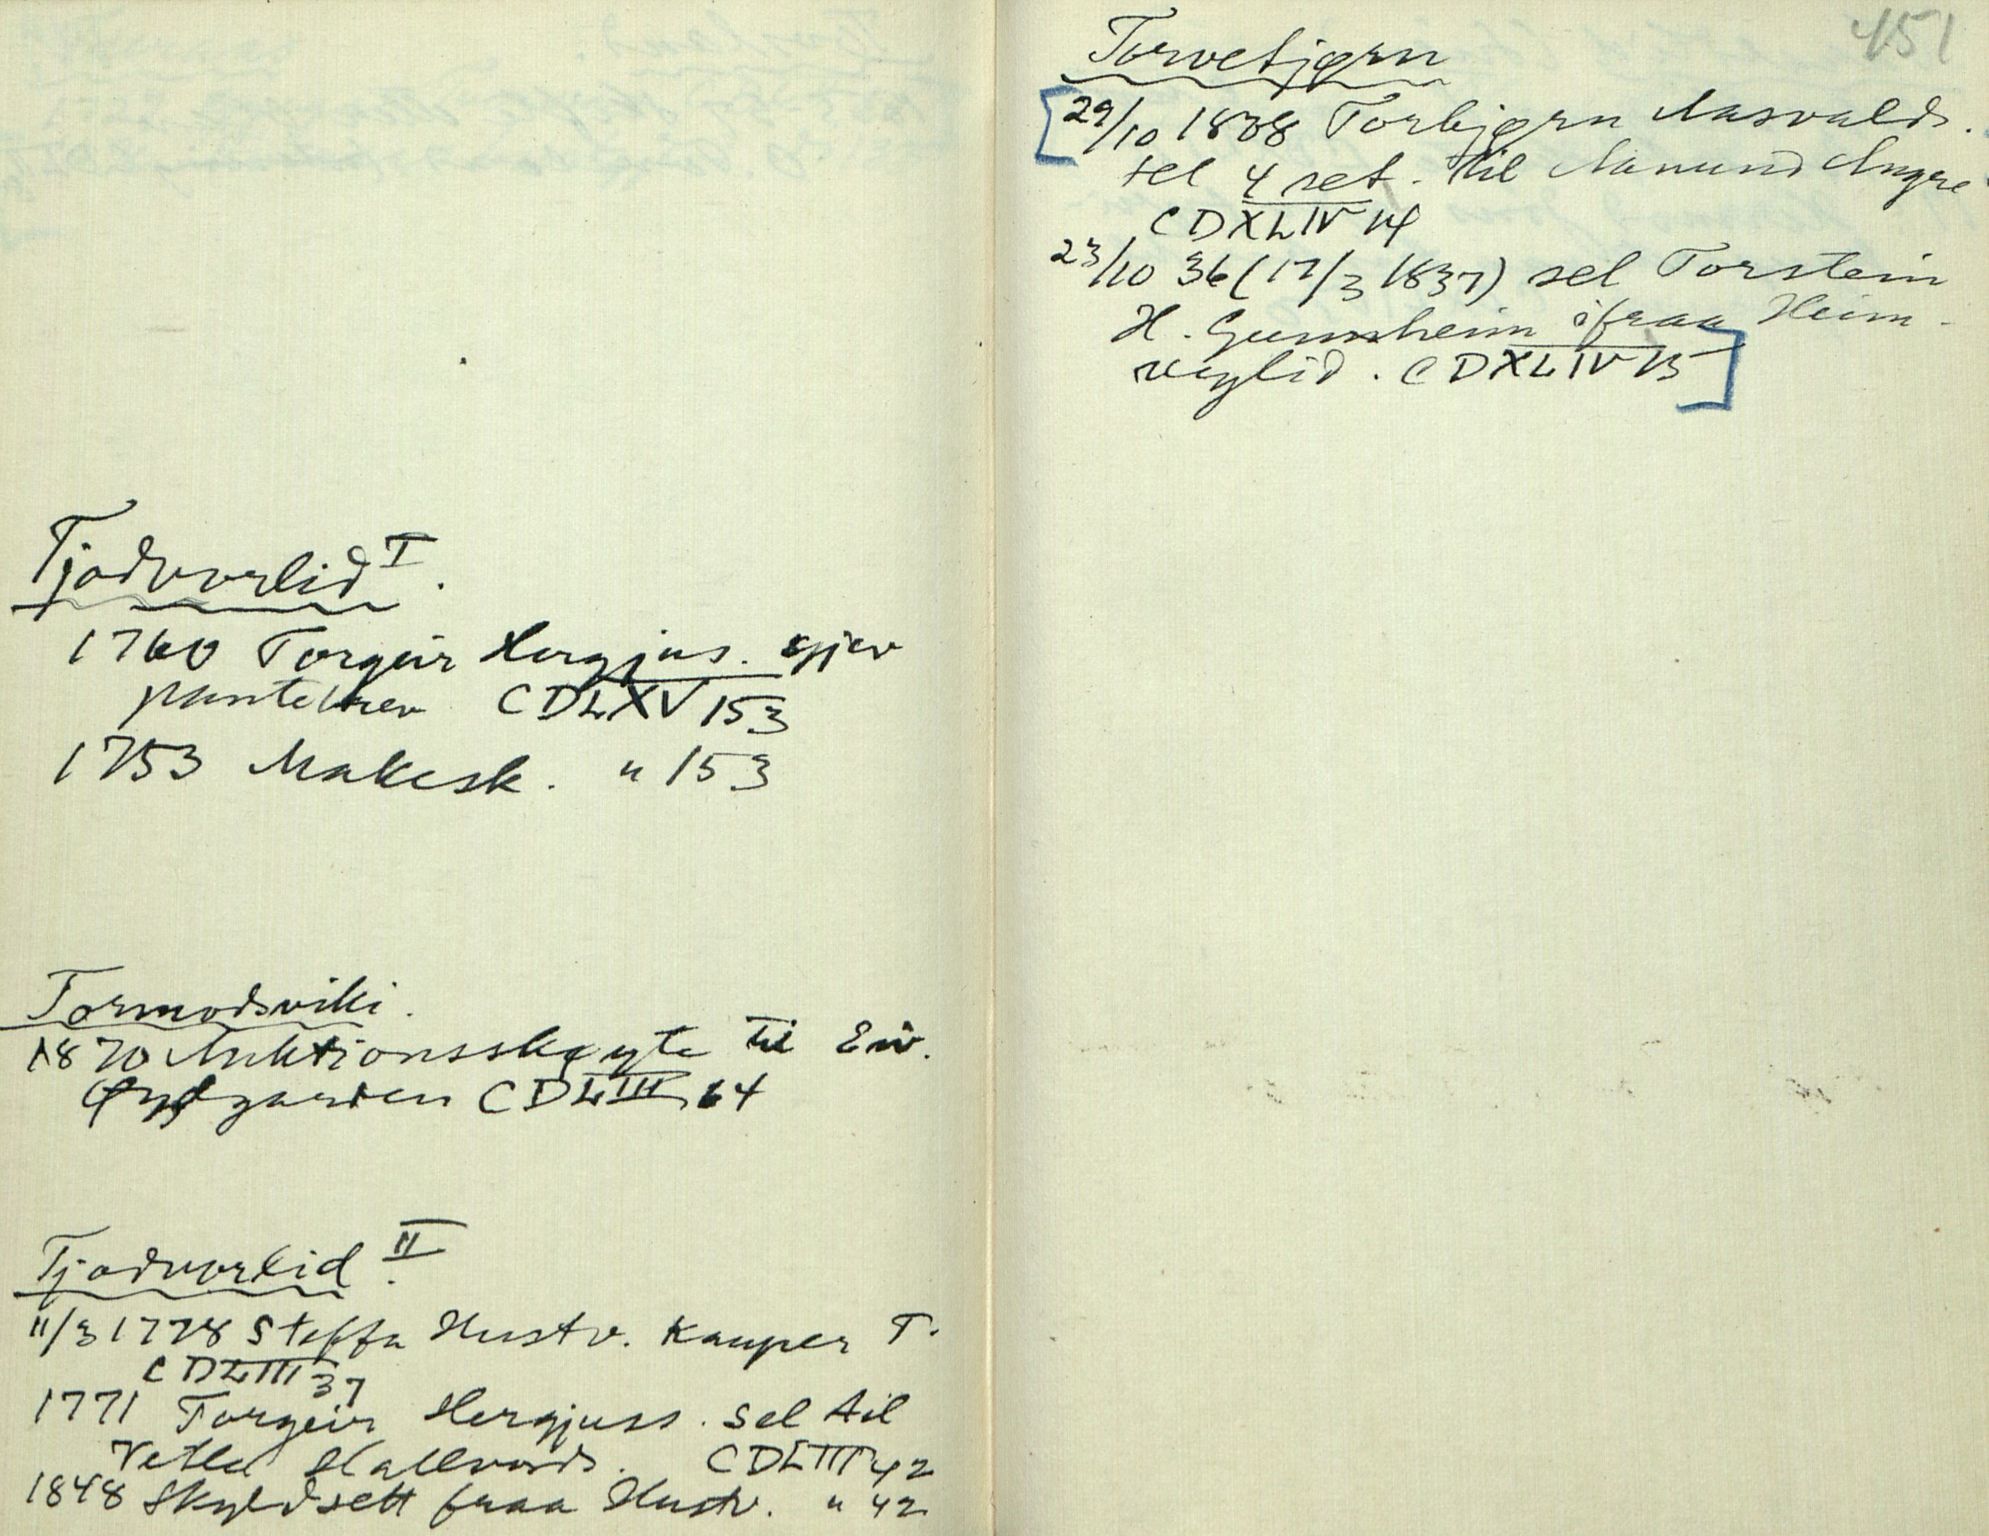 Tjodvorlid I.
1760 Torgeir Hergjus. gjev
pantebrev CDLXV 153
1753 Makesk. " 153
Tormodsviki.
1870 Auktionsskøyte til Eiv.
Øygarden CDLIII 64
Tjodvorlid II.
11/3 1778 Steffa Hustv. Kauper T.
CDLIII 37
1771 Torgeir Hergjuss. sel til
Vetle Hallvords. CDLIII 42
1848 Skyldsett fraa Hustv. " 42
451
Torvetjørn
29/10 1838 Torbjørn Aasvalds.
sel 4 set. til Aamund
CDXLIV 14
23/10 36 (17/3 1837) sel Torstein
H. Gunnheim ifraa Heim-
CDXLIV 13